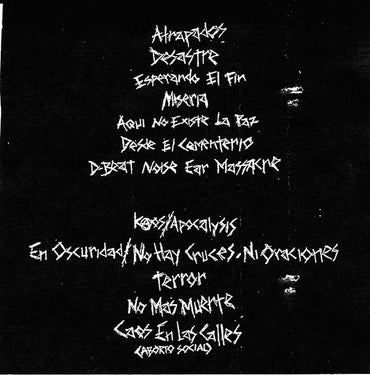 Atrapados
Desastre
Esperando El Fin
Miseria
Aqui No Existe La Paz
Desde El Cementerio
D-Beat Noise Ear Massacre
Kaos/Apocalysis
En Oscuridad/No Hay Cruces, Ni Oraciones
Terror
No Mas Muerte
Caos En Las Calles
(Aborto Social)